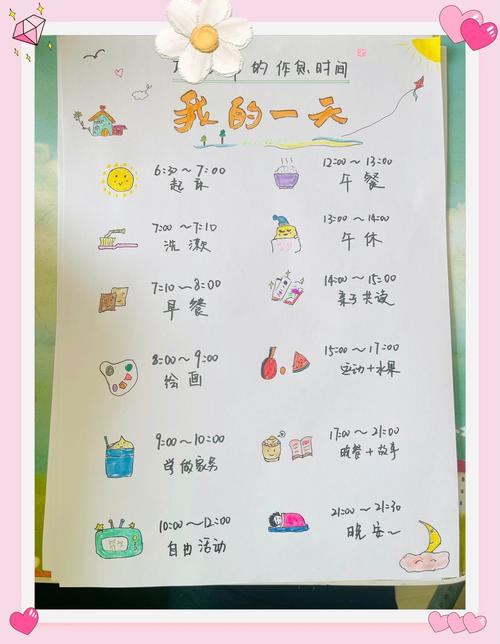 的作息时间
我的一天
6:30~7:00
起床
7:00~7:10
洗漱
7:10~8:00
早餐
8:00~9:00
绘画
9:00~10:00
学做家务
10:00~12:00
自由活动
12:00~13:00
午餐
13:00~14:00
午休
14:00~15:00
亲子共读
15:00~17:00
运动+水果
17:00~21:00
晚餐+故事
21:00~21:30
晚安~